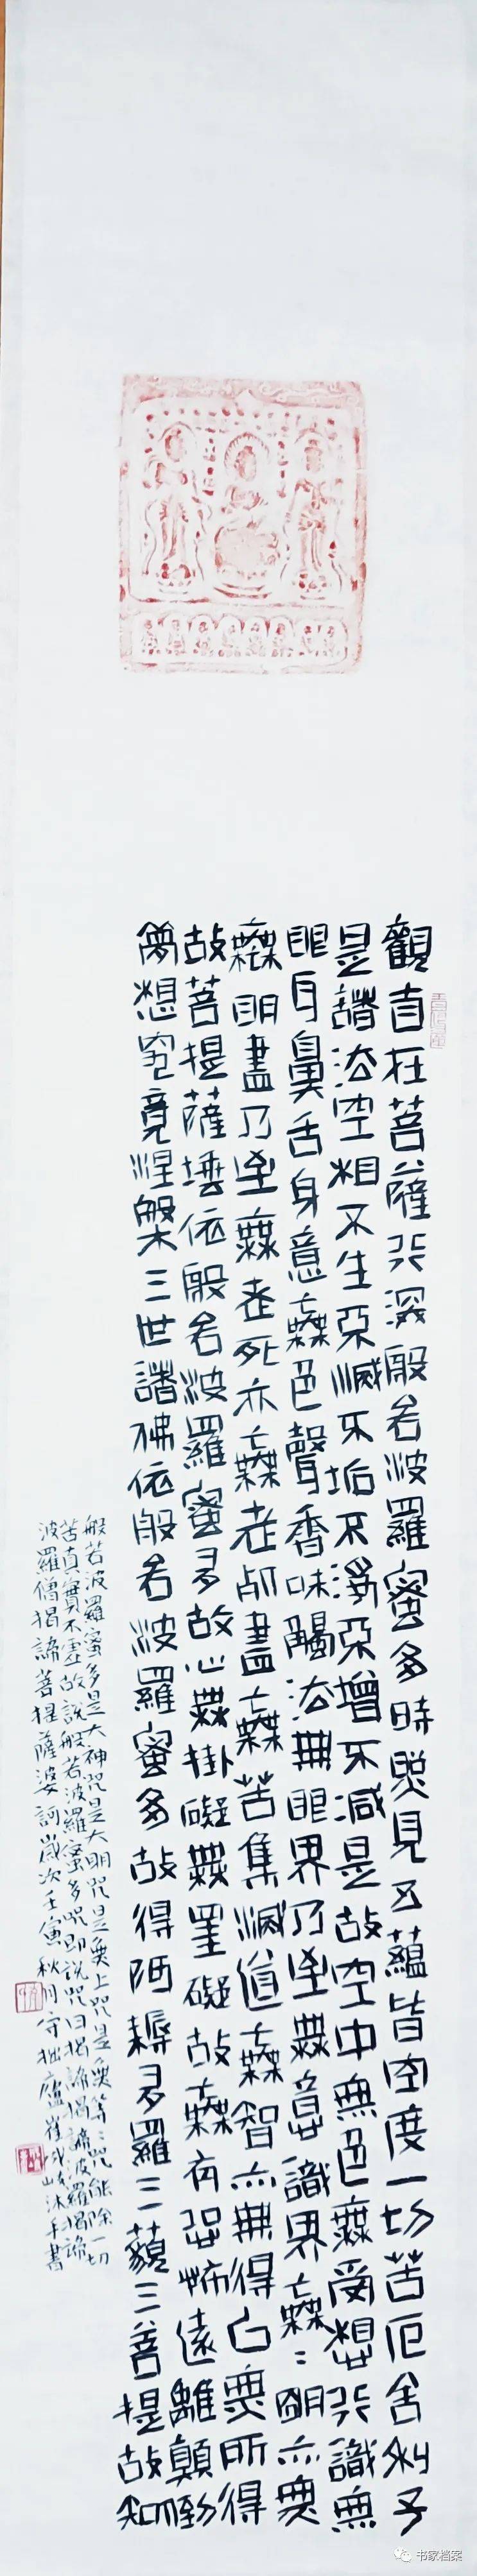 觀自在菩薩行深般若波羅蜜多時照見五蘊皆空度一切苦厄舍利子
是諸法空相不生不滅不垢不淨不增不減是故空中無色無受想行識無
眼耳鼻舌身意無色聲香味觸法無眼界乃至無意識界無無明亦無
無明盡乃至無老死亦無老死盡無苦集滅道無智亦無得以無所得
故菩提薩埵依般若波羅蜜多故心無掛礙無罣礙故無有恐怖遠離顛倒
夢想究竟涅槃三世諸佛依般若波羅蜜多故得阿耨多羅三藐三菩提故知
般若波羅蜜多是大神咒是大明咒是無上咒是無等等咒能除一切
苦真實不虛故說般若波羅蜜多咒即說咒曰揭諦揭諦波羅揭諦
波羅僧揭諦菩提薩婆訶歲次壬寅秋月守拙廬崔沐手書
书家档案